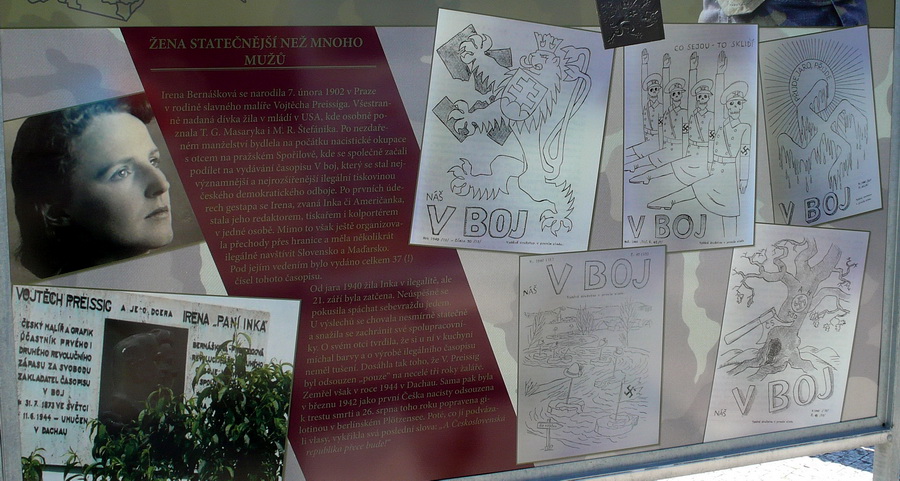 ŽENA STATEČNĚJŠÍ NEŽ MNOHO
MUŽŮ
Irena Bernášková se narodila 7. února 1902 v Praze
v rodině slavného malíře Vojtěcha Preissiga. Všestran-
ně nadaná dívka žila v mládí v USA, kde osobně po-
znala T. G. Masaryka i M. R. Štefánika. Po nezdaře-
ném manželství bydlela na počátku nacistické okupace
s otcem na pražském Spořilově, kde se společně začali
podílet na vydávání časopisu V boj, který se stal nej-
významnější a nejrozšířenější ilegální tiskovinou
českého demokratického odboje. Po prvních úde-
rech gestapa se Irena, zvaná Inka či Američanka,
stala jeho redaktorem, tiskařem i kolportérem
v jedné osobě. Mimo to však ještě organizova-
la přechody přes hranice a měla několikrát
ilegálně navštívit Slovensko a Maďarsko.
Pod jejím vedením bylo vydáno celkem 37 (!)
čísel tohoto časopisu.
Od jara 1940 žila Inka v ilegalitě, ale
21. září byla zatčena. Neúspěšně se
pokusila spáchat sebevraždu jedem.
U výslechů se chovala nesmírně statečně
a snažila se zachránit své spolupracovní-
ky. O svém otci tvrdila, že si u ní v kuchyni
míchal barvy a o výrobě ilegálního časopisu
neměl tušení. Dosáhla tak toho, že V. Preissig
byl odsouzen „pouze" na necelé tři roky žaláře.
Zemřel však v roce 1944 v Dachau. Sama pak byla
v březnu 1942 jako první Češka nacisty odsouzena
k trestu smrti a 26. srpna toho roku popravena gi-
lotinou v berlínském Plötzensee. Poté, co jí podváza-
li vlasy, vykřikla svá poslední slova: „A Československá
republika přece bude!"
VOJTĚCH PREISSIG A JEHO DCERA IRENA „PANÍ INKA"
ČESKÝ MALÍŘ A GRAFIK
ÚČASTNÍK PRVÉHO I
DRUHÉHO REVOLUČNÍHO
ZÁPASU ZA SVOBODU
ZAKLADATEL ČASOPISU
V BOJ
31. 7. 1873 VE SVĚTCI
11. 6. 1944 - UMUČEN
V DACHAU
NÁŠ
V BOJ
CO SEJOU - TO SKLIDÍ
V BOJ
V BOJ
NÁŠ
V BOJ
V BOJ
NÁŠ